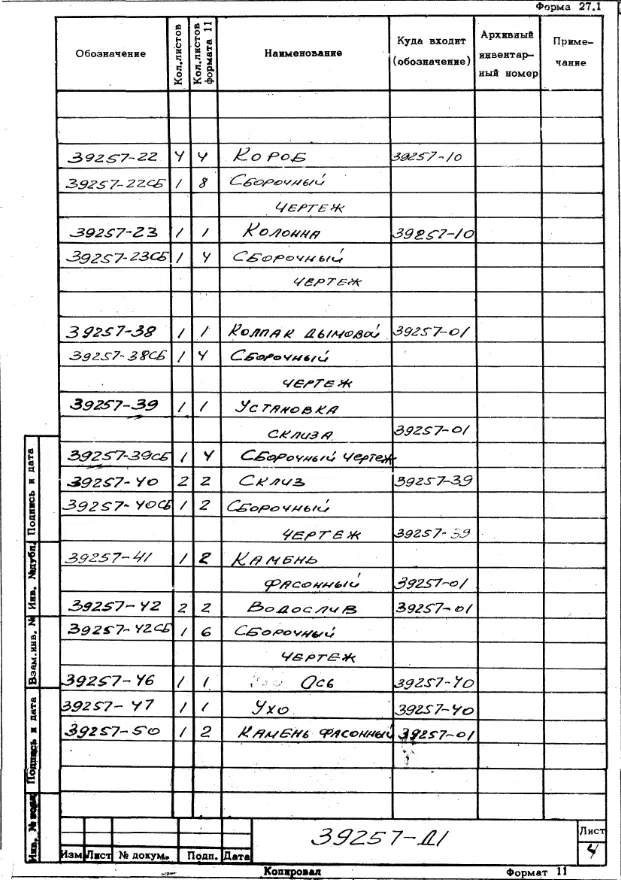 Форма 27.1
Обозначение Кол.листов Кол.листов формата 11 Наименование Куда входит (обозначение) Архивный инвентар-ный номер Приме-чание
39257-22 4 4 Короб 39257-10
39257-22СБ 1 8 Сборочный
чертеж
39257-23 1 1 Колонна 39257-10
39257-23СБ 1 4 Сборочный
чертеж
39257-38 1 1 Колпак дымовой 39257-01
39257-38СБ 1 4 Сборочный
чертеж
39257-39 1 1 Установка
склиза 39257-01
39257-39СБ 1 4 Сборочный чертеж
39257-40 2 2 Склиз 39257-39
39257-40СБ 1 2 Сборочный
чертеж 39257-39
39257-41 1 2 Камень
фасонный 39257-01
39257-42 2 2 Водослив 39257-01
39257-42СБ 1 6 Сборочный
чертеж
39257-46 1 1 Ось 39257-40
39257-47 1 1 Ухо 39257-40
39257-50 1 2 Камень фасонный 39257-01
Подпись и дата
Инв. №дубл.
Взам.инв. №
Подпись и дата
Инв. № подл
Изм Лист № докум. Подп. Дата
39257-Д1
Лист
4
Копировал Формат 11